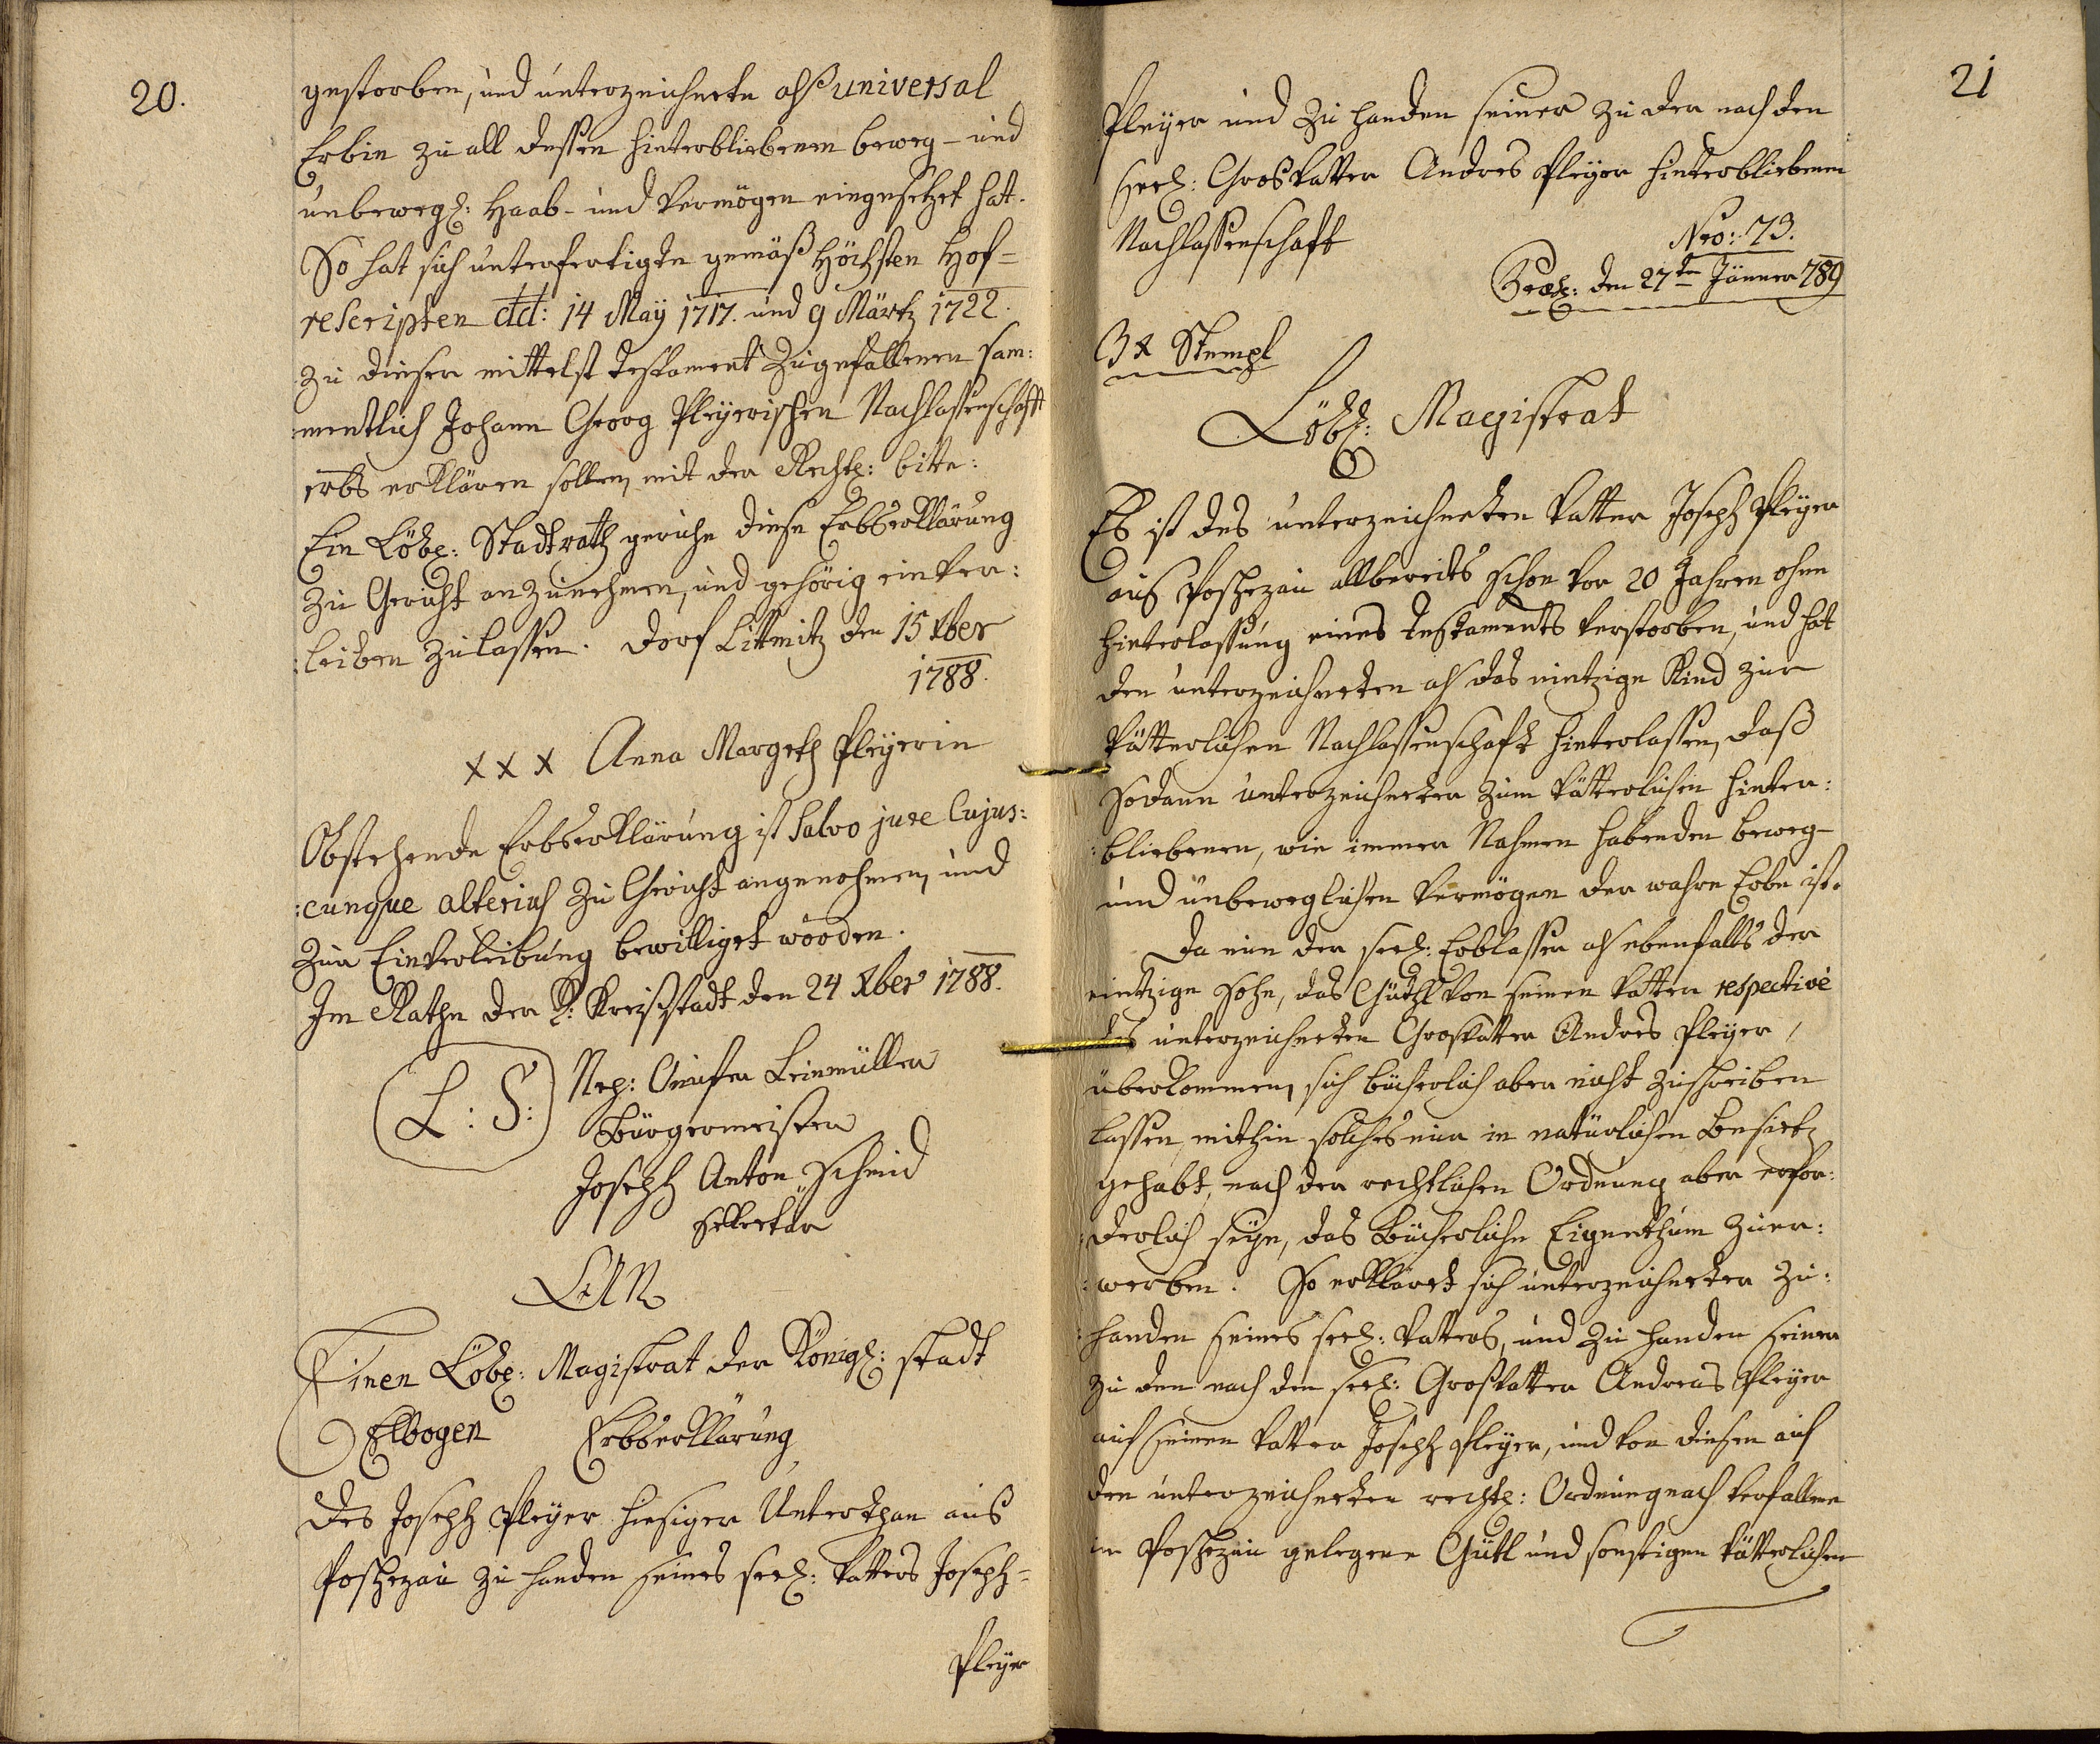 20.
gestorben, und unterzeichnete alß universal
Erbin zu all dessen hinterbliebenen beweg- und
unbewegl: Haab- und Vermögen eingesetzet hat.
So hat sich unterfertigte gemäß Höchsten Hof=
rescripten dtd: 14 May 1717. und 9 Märtz 1722.
zu dieser mittelst Testament zugefallenen sam:
mentlich Johann Georg Pleyerischen Nachlassenschafft
erbs erklären sollen, mit der Rechtl: bitte:
Ein Löbl: Stadtrath geruhe diese Erbserklärung
zu Gericht anzunehmen, und gehörig einver:
leiben zulassen. Dorf Littmitz den 15 Xber
1788.
x x x Anna Margreth Pleyerin
Obstehende Erbserklärung ist Salvo jure Cujus:
:cunque alterius zu Gericht angenohmen, und
zur Einverleibung bewilliget worden.
Im Rathe der K: Kreißstadt den 24 Xber 1788.
(L: S:) Nep: Leinmüller
Bürgermeister
Joseph Anton Schmid
Sekretär
AN
Einen Löbl: Magistrat der Königl: Stadt
Elbogen Erbserklärung
Des Joseph Pleyer hiesiger Unterthan aus
Poschezau zu handen seines seel: Vatters Joseph=
Pleyer
21
Pleyer und zu handen seiner zu der nach den
seel: Großvatter Andres Pleyer hinterbliebenen
Nachlassenschaft
Nro: 73.
Præs: den 27ten Jänner 789
3 x Stempl
Löbl: Magistrat
Es ist des unterzeichneten Vatter Joseph Pleyer
aus Poschezau allbereits schon vor 20 Jahren ohne
hinterlassung eines Testaments verstorben, und hat
den unterzeichneten als das eintzige Kind zur
Vätterlichen Nachlassenschaft hinterlassen, daß
sodann unterzeichneter zum Vätterlichen hinter:
:bliebenen, wie immer Nahmen habenden beweg-
und unbeweglichen Vermögen der wahre Erbe ist.
Da nun der seel: Erblasser als ebenfalls der
eintzige Sohn, das Gütl von seinen Vatter respective
des unterzeichneten Grosvatter Andres Pleyer,
überkommen, sich bücherlich aber nicht zuschreiben
lassen, mithin solches nur in natürlichen Besietz
gehabt, nach der rechtlichen Ordnung aber erfor:
:derlich seye, das Bücherliche Eigenthum zuer:
:werben. So erkläret sich unterzeichneter zu:
:handen seines seel: Vatters, und zu handen seiner
zu den nach den seel: Großvatter Andreas Pleyer
auf seinen Vatter Joseph Pleyer, und von diesen auf
den unterzeichneten rechtl: Ordnung nach verfallene
in Poschezau gelegene Gütl und sonstigen Vätterlichen